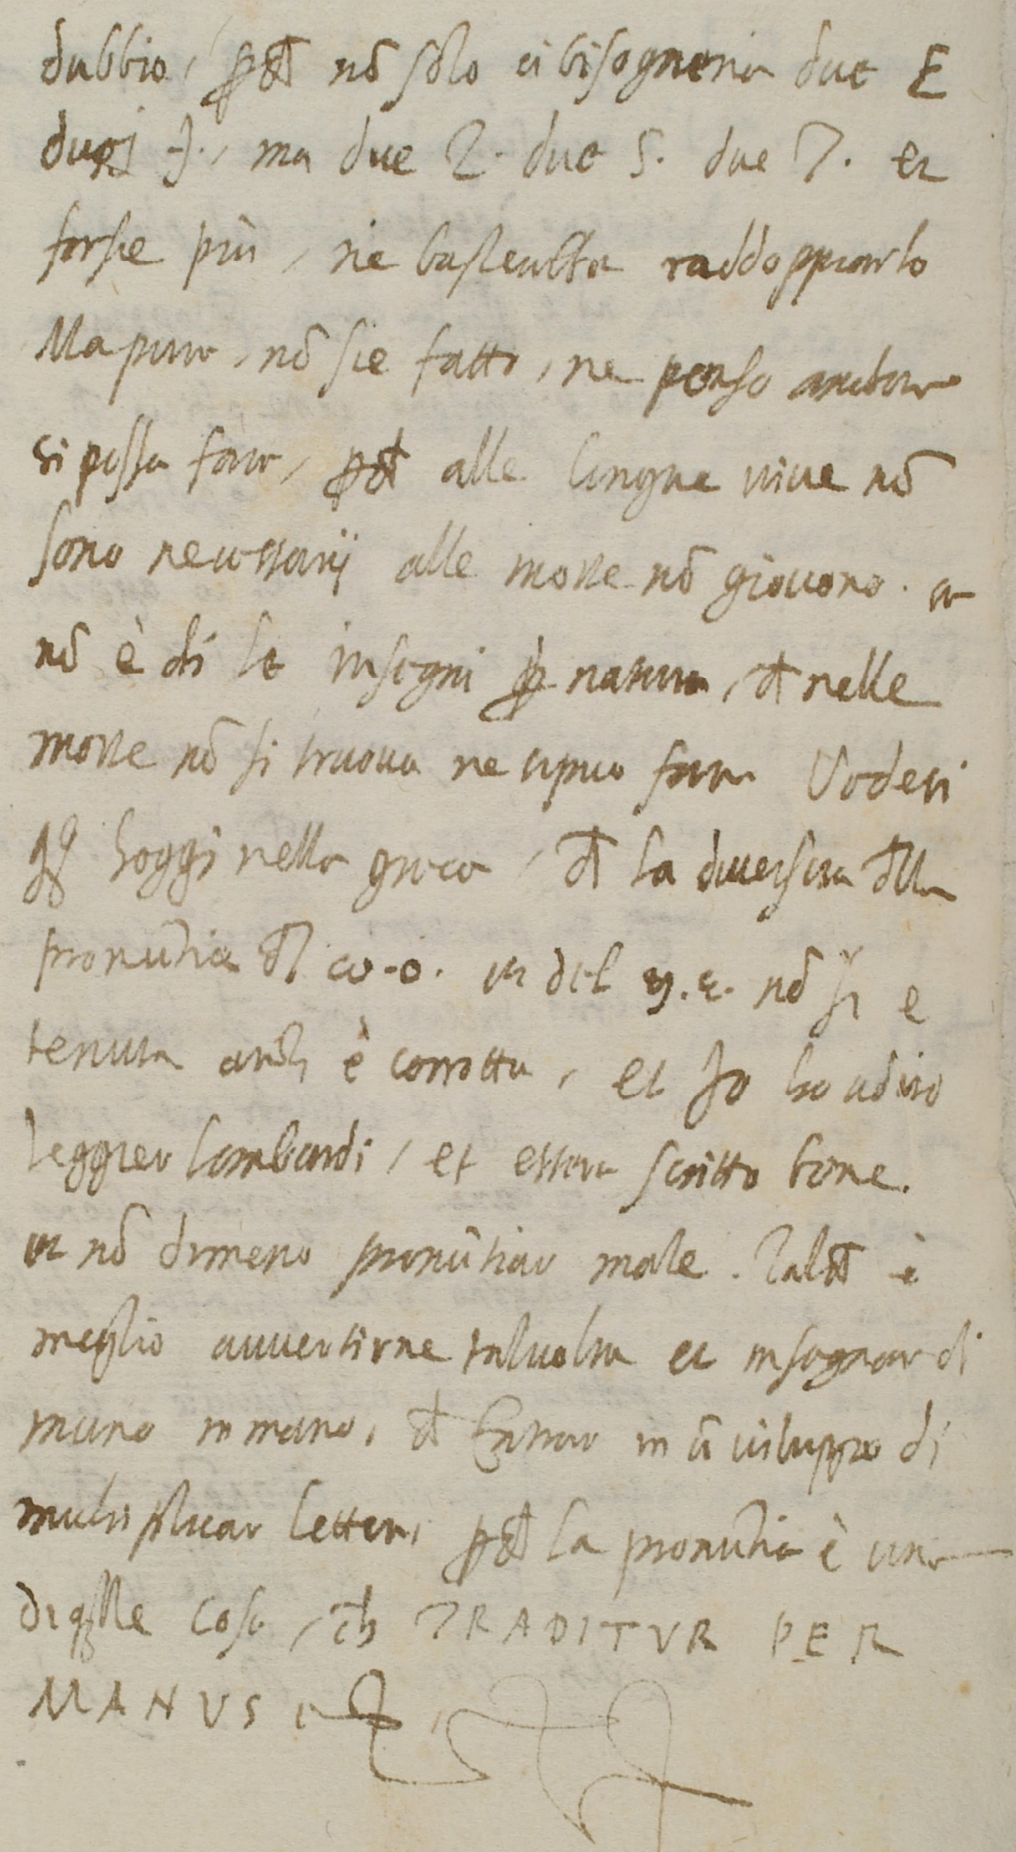 dubbio, pch nō solo ci bisogneria due E
duoi J., ma due Z. due S. due T. et
forsse più, ne bastarebbe raddoppiarlo
Ma pure, nō si è fatto, ne penso anchora
si possa fare, pch alle lingue vive nō
sono necessarij alle morte nō giovono. et
nō è chi le insegni p natura, ch nelle
morte nō si truova ne si puo fare Vedesi
hoggi nella greca, ch la diversita della
pronūtia del ω. o. et del η. ε. nō si e
tenuta anch è corrotta, et Jo ho udito
leggier lombardi, et essere scritto bene.
et nō dimeno pronūtiar male. Talch è
meglio avvertirne talvolta et insegnar di
mano in mano, ch Entrar in ū viluppo di
multiplicar lettere pch la pronūtia è una
di qlle cose, ch TRADITUR PER
MANUS etc.